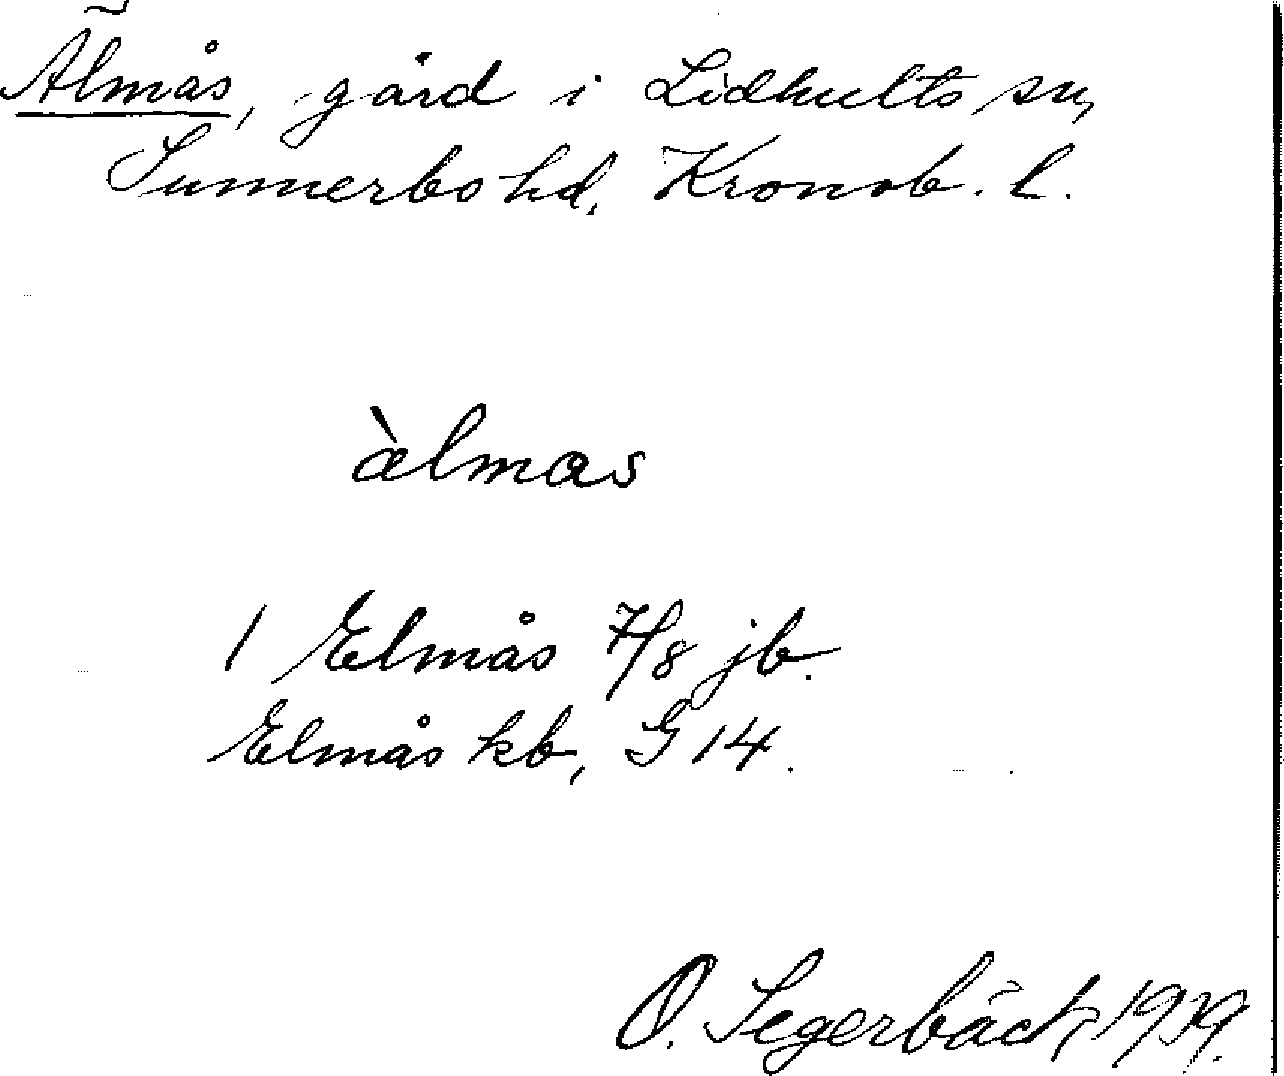 Älmås, gård i Lidhults sn,
Sunnerbo hd, Kronob. l.
àlmas
1 Elmås 7/8 jb.
Elmås kb, G 14.
O. Segerbäck 1939.